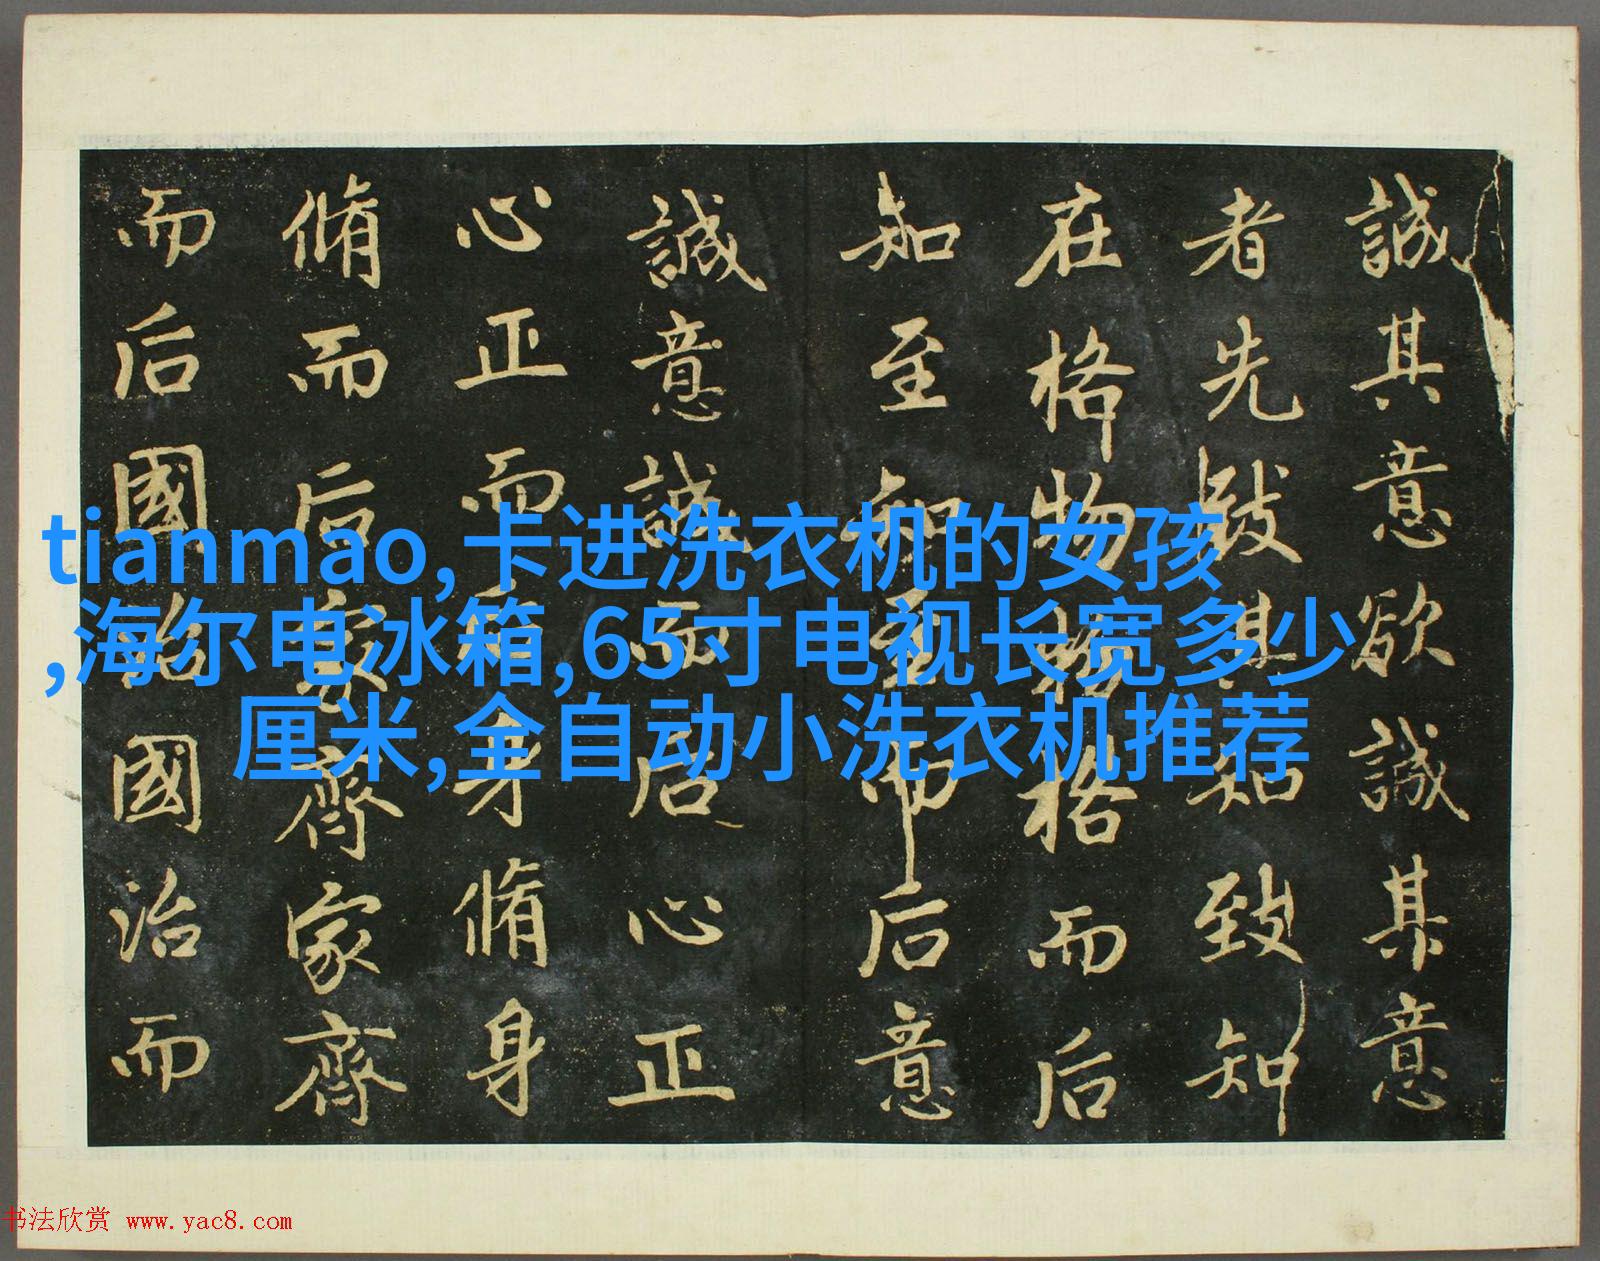 誠其意欲誠其意
者先致其知致知
在格物物格而后
知至知至而后意
誠意誠而后心正
心正而后身脩身
脩而后家齊家齊
而后國治國治而
tianmao,卡进洗衣机的女孩
,海尔电冰箱,65寸电视长宽多少
厘米,全自动小洗衣机推荐
书法欣赏 www.yac8.com